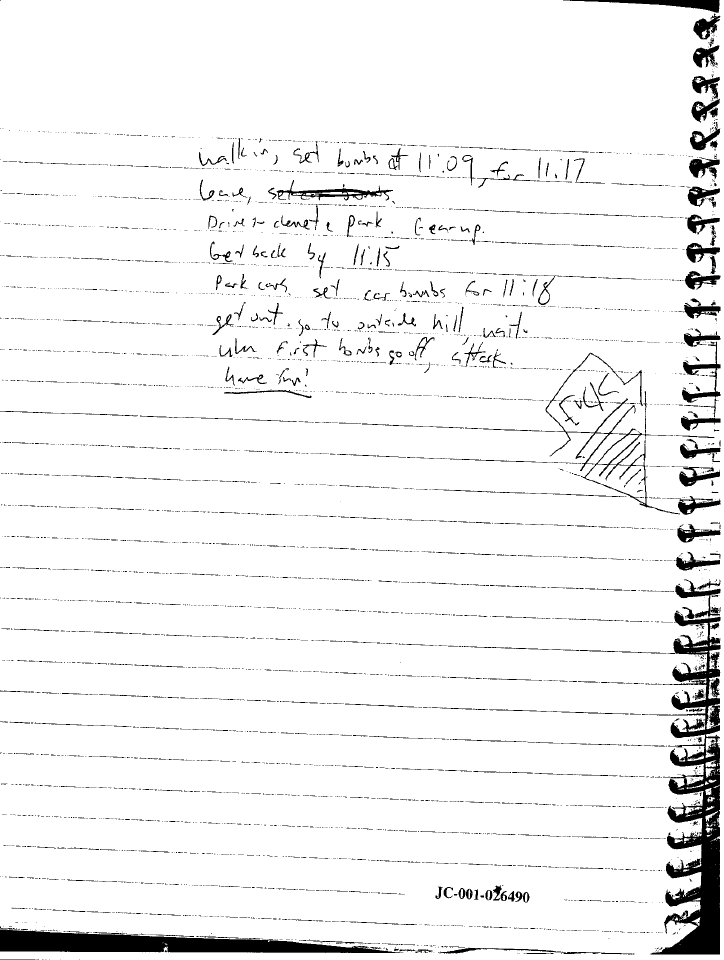 walk in, set bombs at 11:09, for 11:17
leave, set car bombs.
Drive to Clemete Park. Gear up.
Get back by 11:15
Park cars. set car bombs for 11:18
get out. go to outside hill, wait.
When first bombs go off, attack.
have fun!
FUCK
JC-001-026490